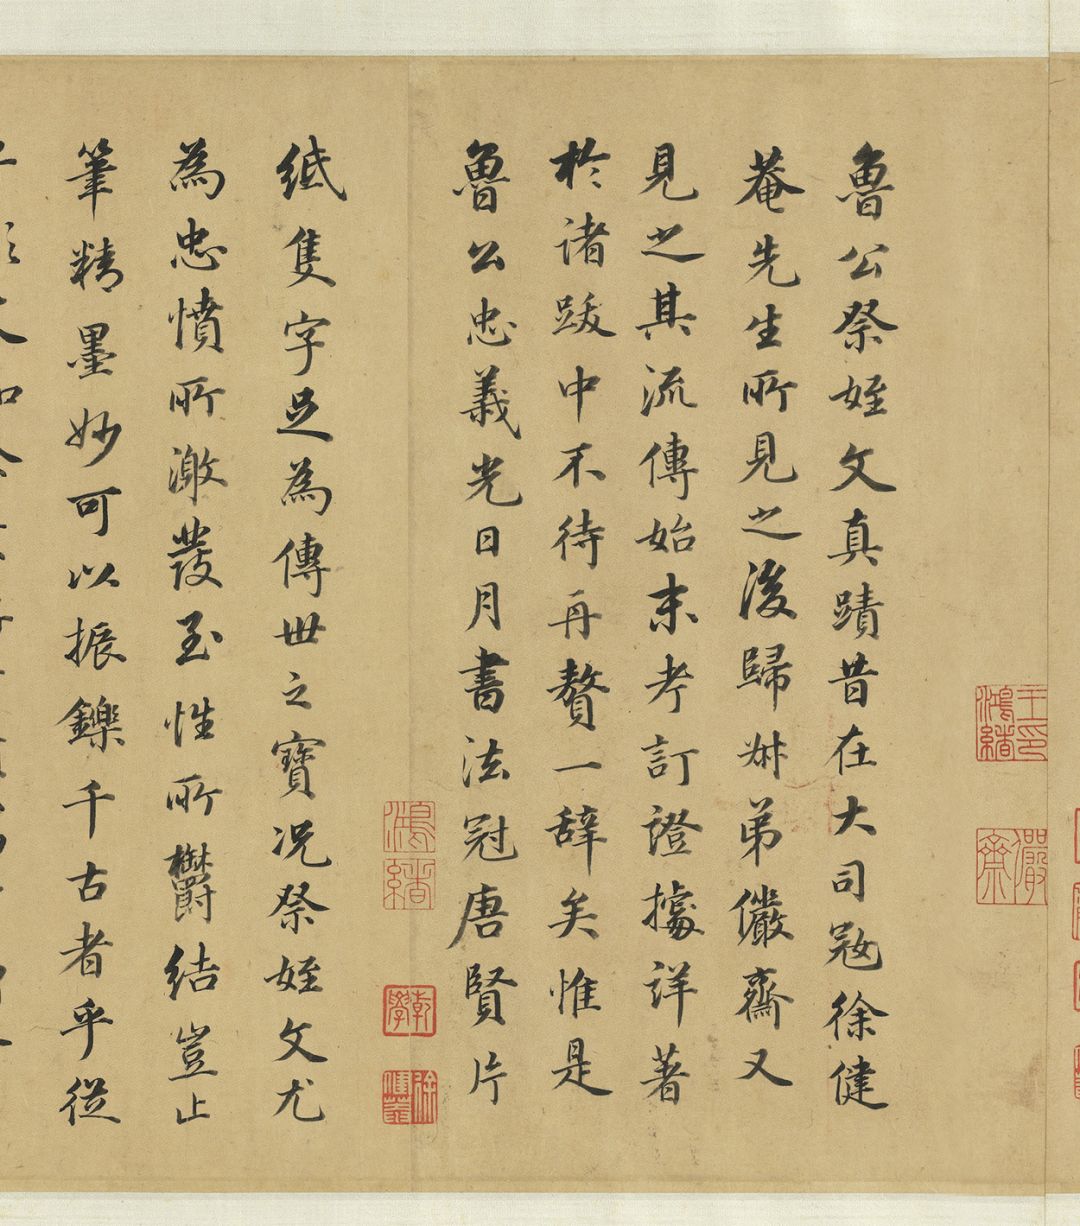 魯公祭姪文真蹟昔在大司寇徐健
菴先生所見之後歸叔弟儼齋又
見之其流傳始末考訂證據詳著
於諸跋中不待再贅一辭矣惟是
魯公忠義光日月書法冠唐賢片
紙隻字足為傳世之寶況祭姪文尤
為忠憤所激發至性所鬱結豈止
筆精墨妙可以振鑠千古者乎從
王印鴻緒
儼齋
鴻緒
乾學